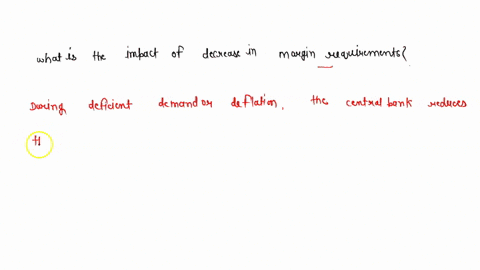 what is the impact of decrease in margin requirements?
During deficient demand or deflation, the central bank reduces
th